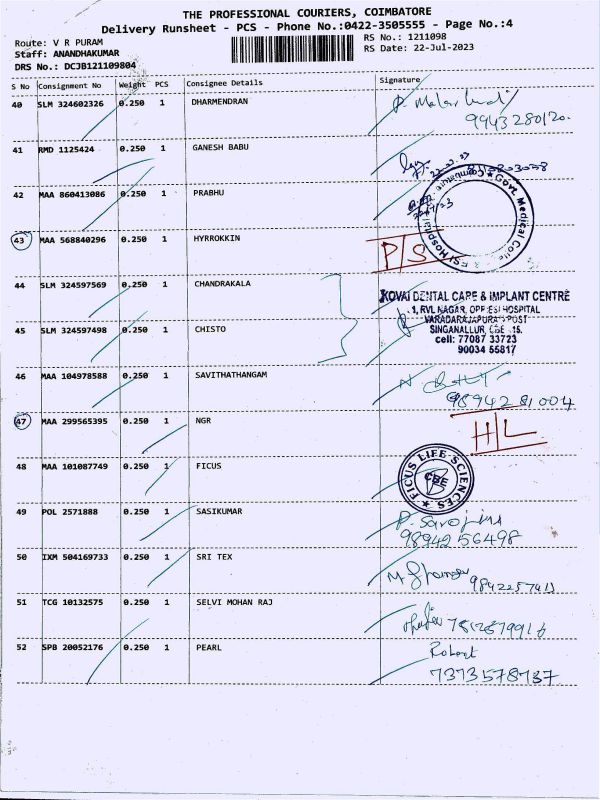 THE PROFESSIONAL COURIERS, COIMBATORE
Delivery Runsheet - PCS - Phone No.:0422-3505555 - Page No.:4
Route: V R PURAM
RS No.: 1211098
Staff: ANANDHAKUMAR
RS Date: 22-Jul-2023
DRS No.: DCJB121109804
S No Consignment No Weight PCS Consignee Details Signature
40 SLM 324602326 0.250 1 DHARMENDRAN
9943280120.
41 RMD 1125424 0.250 1 GANESH BABU
42 MAA 860413086 0.250 1 PRABHU
Govt. Medical College ESI Hospital Coimbatore
43 MAA 568840296 0.250 1 HYRROKKIN
P/S
44 SLM 324597569 0.250 1 CHANDRAKALA
KOVAI DENTAL CARE & IMPLANT CENTRE
1, RVL NAGAR, OPP: ESI HOSPITAL
VARADARAJAPURAM POST
45 SLM 324597498 0.250 1 CHISTO
SINGANALLUR, CBE - 15.
cell: 77087 33723
90034 55817
46 MAA 104978588 0.250 1 SAVITHATHANGAM
9894281004
47 MAA 299565395 0.250 1 NGR
H/L
48 MAA 101087749 0.250 1 FICUS
FICUS LIFE SCIENCES
CBE
49 POL 2571888 0.250 1 SASIKUMAR
P. Sarojini
9894256498
50 IXM 504169733 0.250 1 SRI TEX
51 TCG 10132575 0.250 1 SELVI MOHAN RAJ
52 SPB 20052176 0.250 1 PEARL
Robert
7373578737